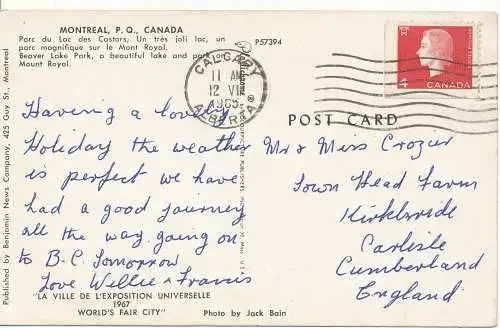 MONTREAL, P. Q., CANADA
Parc du Lac des Castors, Un très joli lac, un
parc magnifique sur le Mont Royal.
Beaver Lake Park, a beautiful lake and park
Mount Royal.
P57394
CALGARY
11 AM
12 VI
1965
ALBERTA
4¢
CANADA
POST CARD
Having a lovely
Holiday the weather
is perfect we have
had a good journey
all the way. going on
to B.C. Tomorrow
Love Willie & Francis
Mr & Miss Crozier
Town Head Farm
Kirklinde
Carlisle
Cumberland
England
"LA VILLE DE L'EXPOSITION UNIVERSELLE
1967
WORLD'S FAIR CITY"
Photo by Jack Bain
Published by Benjamin News Company, 425 Guy St., Montreal